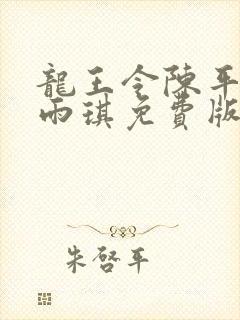 龍王令陳平
雨琪免費版
朱啓平